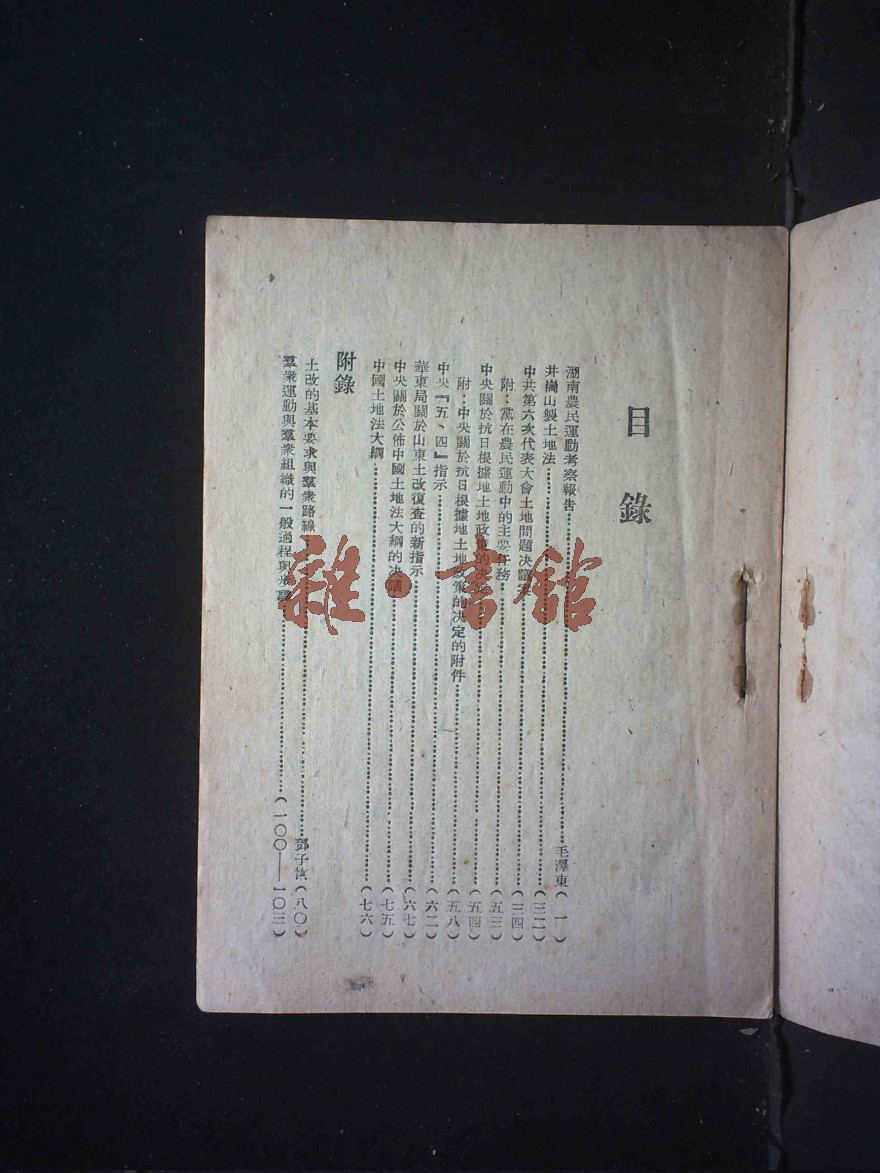 目錄
湖南農民運動考察報告……毛澤東（一）
井崗山製土地法……（三二）
中共第六次代表大會土地問題决議案……（三四）
附：黨在農民運動中的主要任務……（五三）
中央關於抗日根據地土地政策的决定……（五四）
附：中央關於抗日根據地土地政策的决定的附件……（五八）
中央『五、四』指示……（六二）
華東局關於山東土改復查的新指示……（六七）
中央關於公佈中國土地法大綱的决議……（七五）
中國土地法大綱……（七六）
附錄
土改的基本要求與羣衆路線……鄧子恢（八〇）
羣衆運動與羣衆組織的一般過程與步驟……（一〇〇——一〇三）
雜·書館